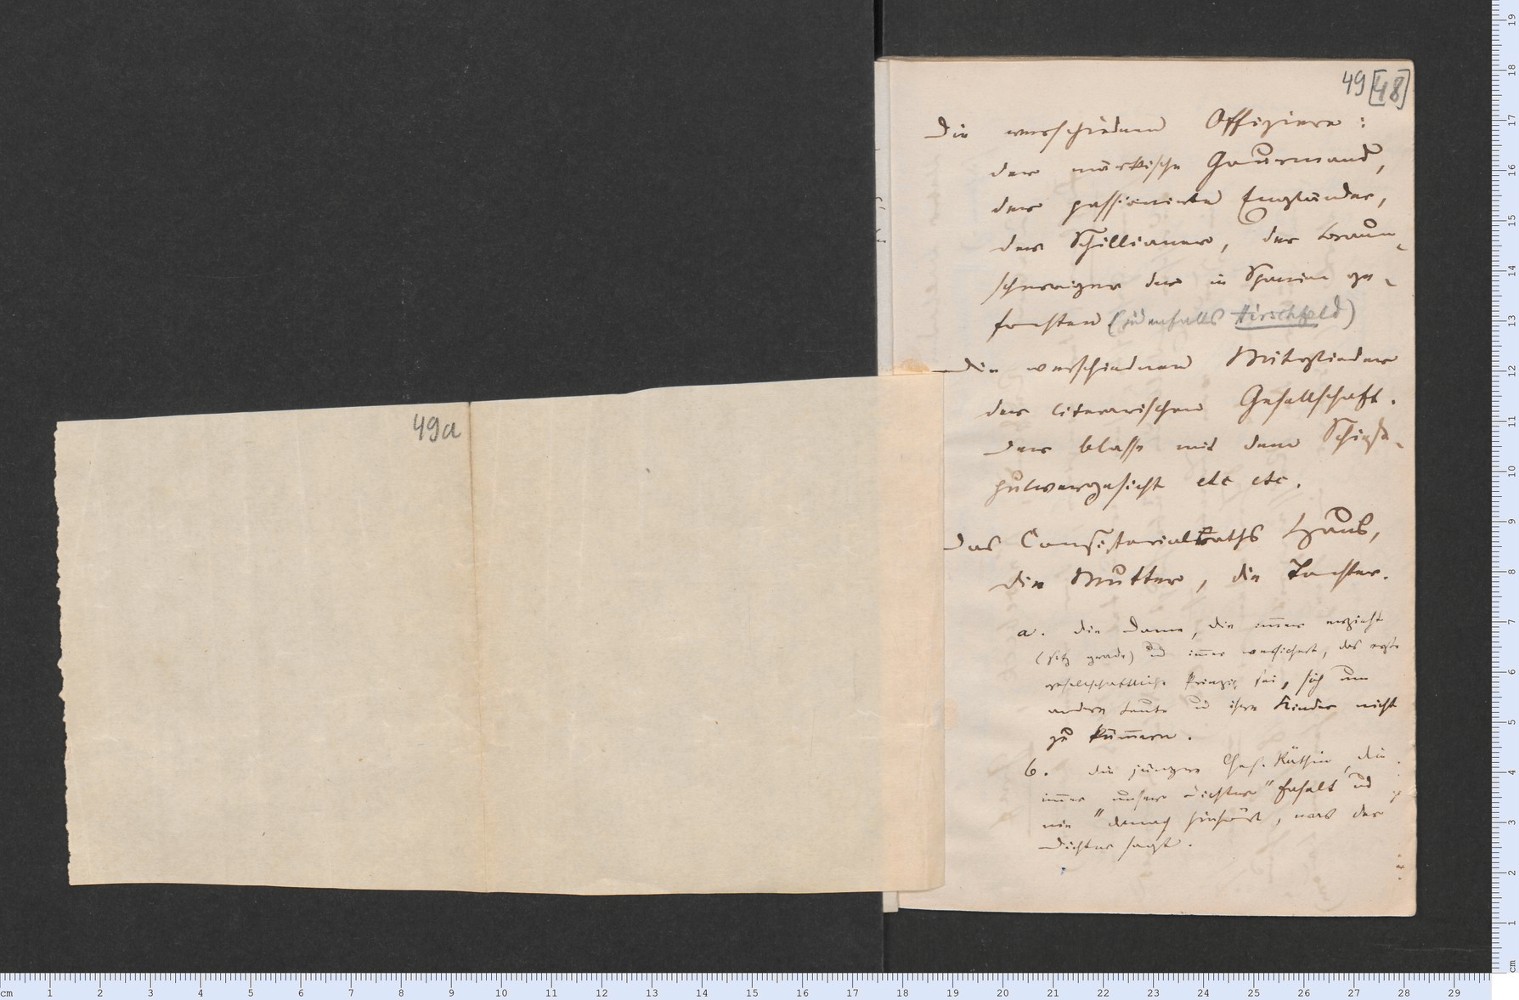 49 [48]
Die verschiednen Offiziere:
der märkische Gourmand,
der passionirte Engländer,
der Schillianer, der Braun-
schweiger der in Spanien ge-
fochten (jedenfalls Hirschfeld)
Die verschiednen Mitglieder
der literarischen Gesellschaft.
Der blasse mit dem Schieß-
pulvergesicht etc etc.
Das Consistorialraths Haus,
die Mutter, die Tochter.
a. Die Dame, die immer erzieht
(sitz grade) und immer versichert, das erste
gesellschaftliche Prinzip sei, sich um
andre Leute und ihre Kinder nicht
zu kümmern.
b. die jüngre Geh. Räthin, die
immer "unsere Dichter" enfalt und
nie danach hinhört, was der
Dichter sagt.
49a